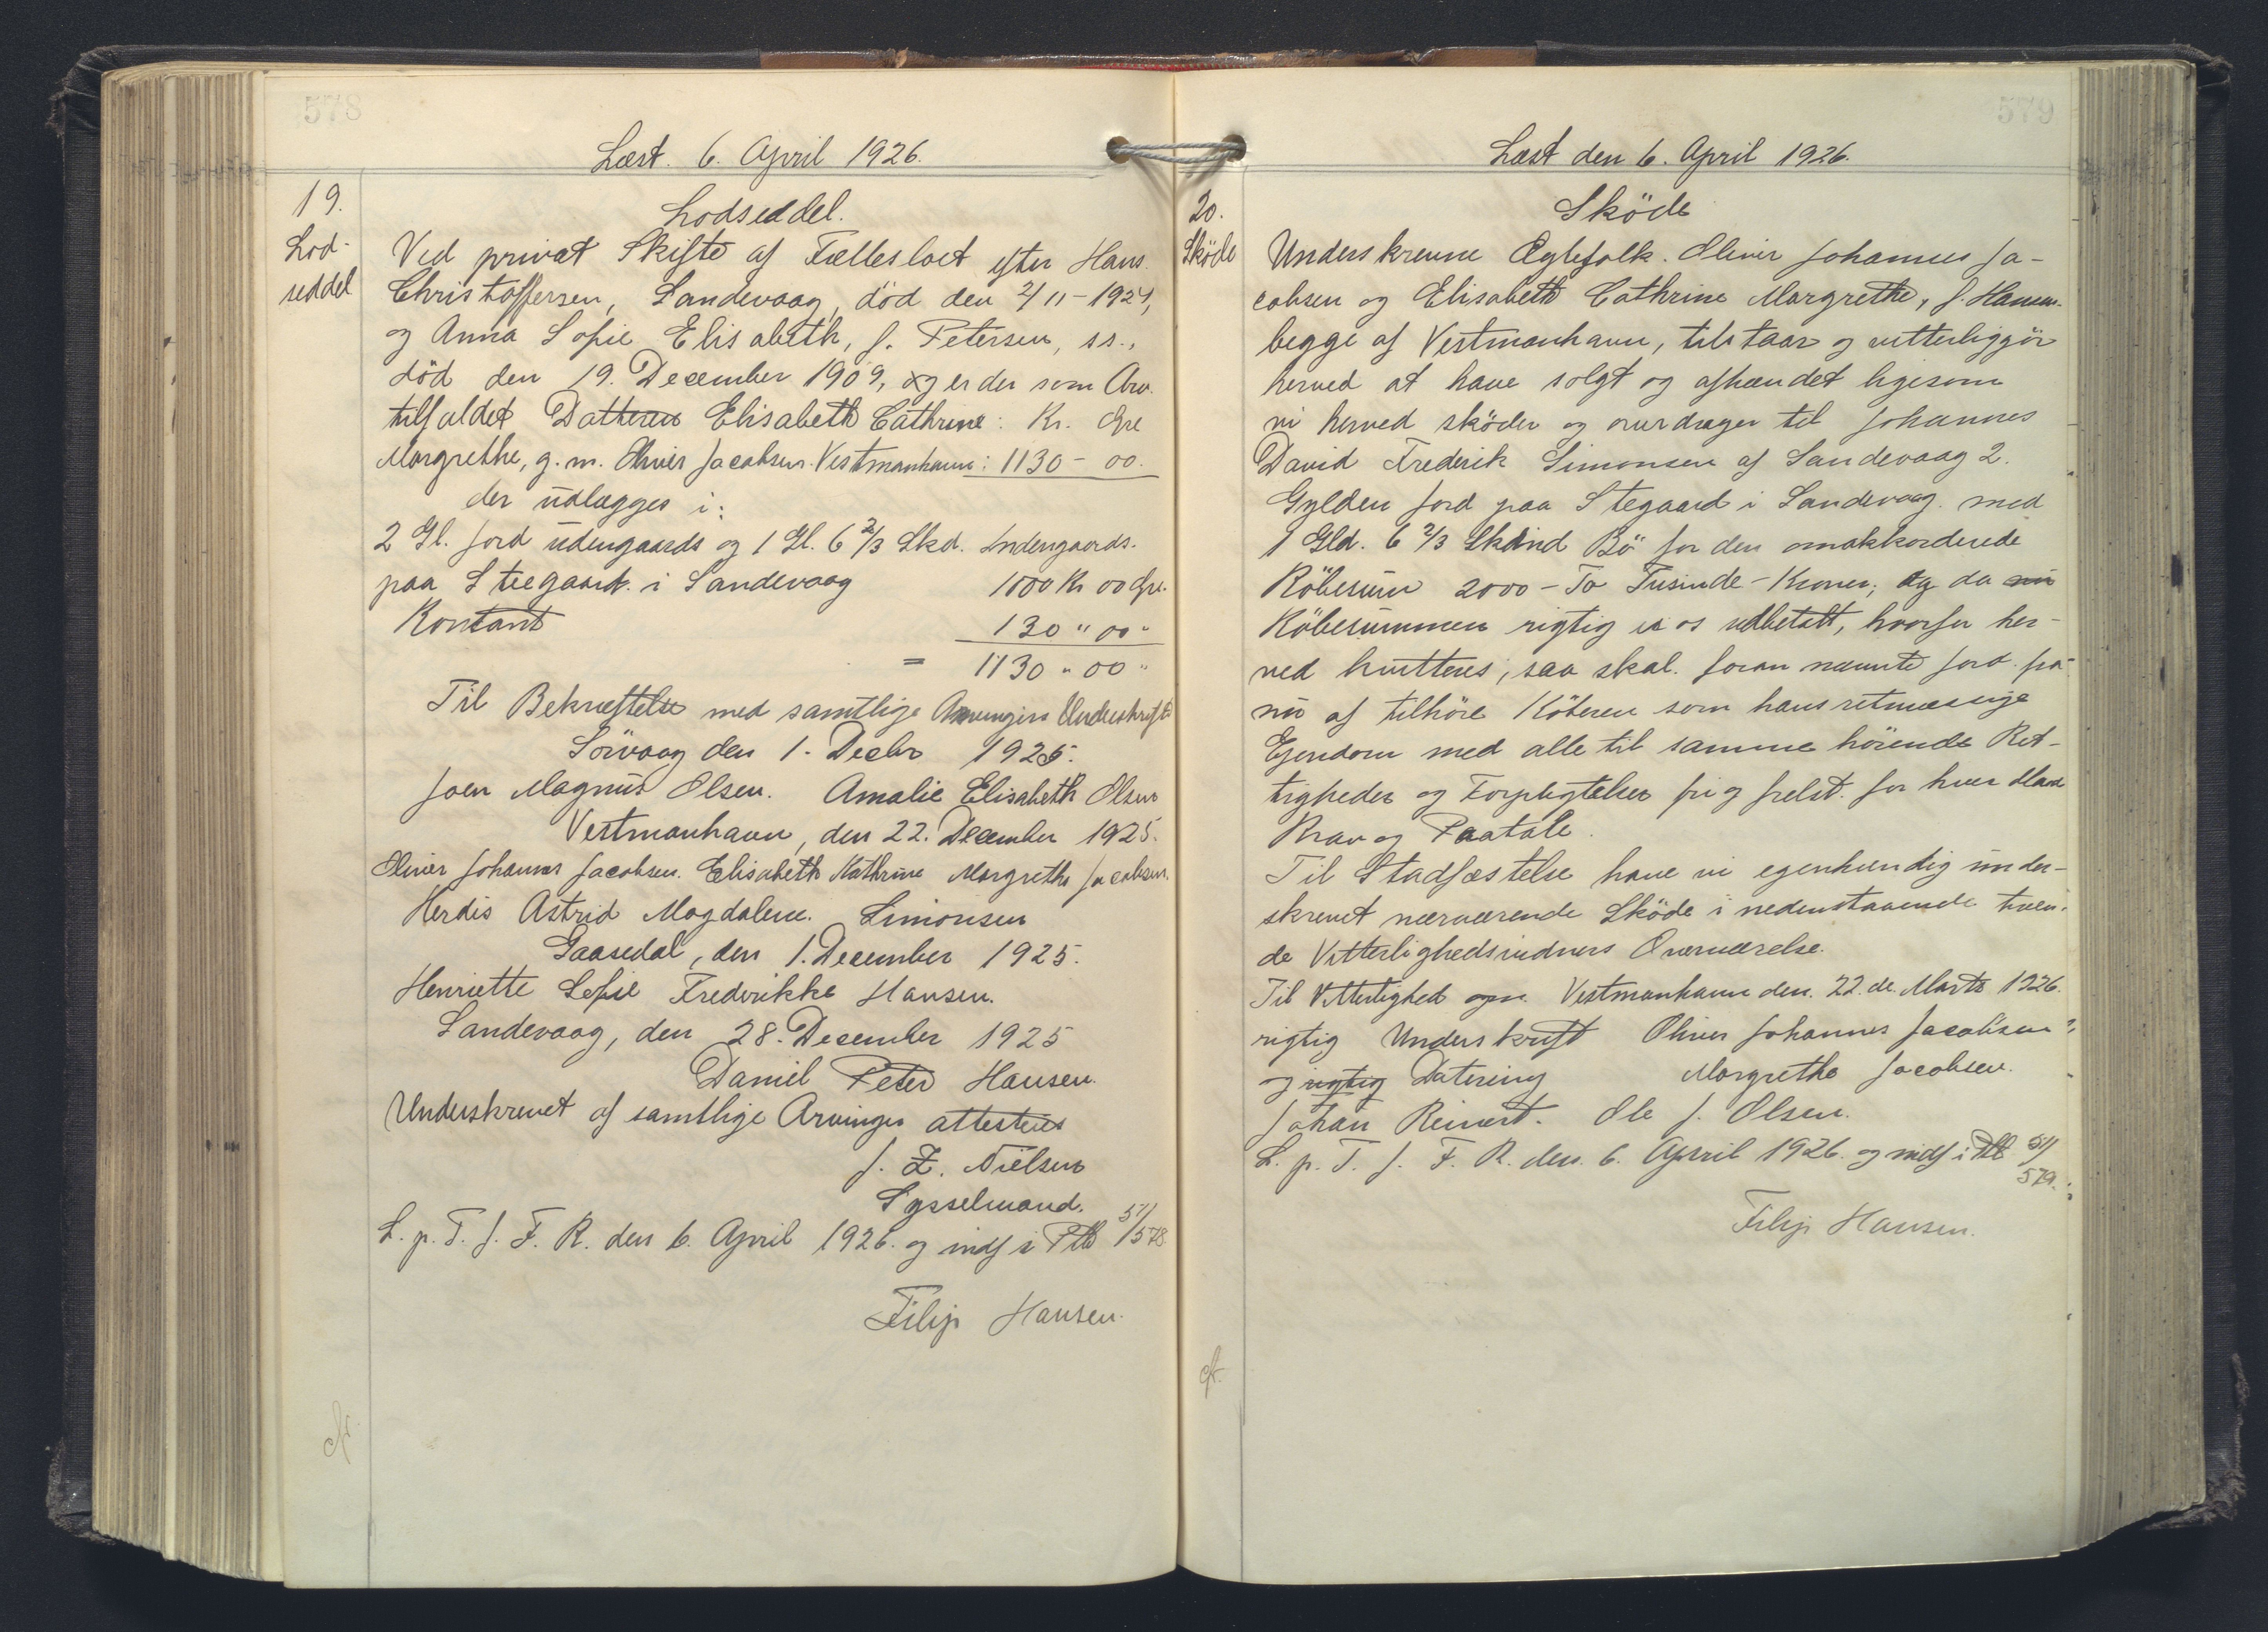 578
Læst. 6. April 1926.
19.
Lod-
seddel
Lodseddel.
Ved privat Skifte af Fællesboet efter Hans
Christoffersen, Sandevaag, død den 2/11-1921,
og Anna Sofie Elisabeth, f. Petersen, ss.,
død den 19. December 1909, og er der som Arv.
tilfaldet Datteren Elisabeth Cathrine: Kr. Øre
Margrethe, g.m. Oliver Jacobsen. Vestmanhavn: 1130 - 00.
der udlægges i:
2 Gl. Jord udengaards og 1 Gl. 6 2/3 Skd. Indengaards.
paa Steegaard. i Sandevaag 1000 Kr 00 Øre.
Kontant 130 " 00 "
= 1130 " 00 "
Til Bekræftelse med samtlige Arvingers Underskrift
Sörvaag den 1. Decbr 1925.
Joen Magnus Olsen. Amalie Elisabeth Olsen
Vestmanhavn, den 22. December 1925.
Oliver Johannes Jacobsen. Elisabeth Kathrine Margrethe Jacobsen.
Herdis Astrid Magdalene. Simonsen
Gaasedal, den 1. December 1925.
Henriette Sofie Frederikke Hansen.
Sandevaag, den 28. December 1925
Daniel Peter Hansen.
Underskrevet af samtlige Arvinger attesteres
J. Z. Nielsen
Sysselmand.
L. p. T. f. F. R. den 6. April 1926. og indf i Ptb 51/578
Filip Hansen.
cfr.
579
Læst den 6. April 1926.
20.
Sköde
Sköde
Underskrevne Ægtefolk. Oliver Johannes Ja-
cobsen og Elisabeth Cathrine Margrethe, f. Hansen.
begge af Vestmanhavn, tilstaar og vitterliggör
herved at have solgt og afhændet ligesom
vi herved sköder og overdrager til Johannes
David Frederik Simonsen af Sandevaag 2.
Gylden Jord paa Stegaard i Sandevaag. med
1 Gld. 6 2/3 Skind Bö for den omakkorderede
Köbesum 2000 - To Tusinde - Kroner, og da nu
Köbesummen rigtig er os udbetalt, hvorfor her-
ved kvitteres, saa skal. foran nævnte Jord. fra
nu af tilhöre Köberen som hans retmæssige
Ejendom med alle til samme hörende Ret-
tigheder og Forpligtelser fri og frelst. for hver Mand
Krav og Paatale.
Til Stadfæstelse have vi egenhændig under-
skrevet nærværende Sköde i nedenstaaende tven-
de Vitterlighedsvidners Overværelse.
Til Vitterlighed om Vestmanhavn den. 22. de. Marts 1926.
rigtig Underskrift Oliver Johannes Jacobsen
og rigtig Datering Margrethe Jacobsen.
Johan Reinert. Ole J. Olsen.
L. p. T. f. F. R. den. 6. April 1926. og indf i Ptb 51/
579.
Filip Hansen.
cfr.